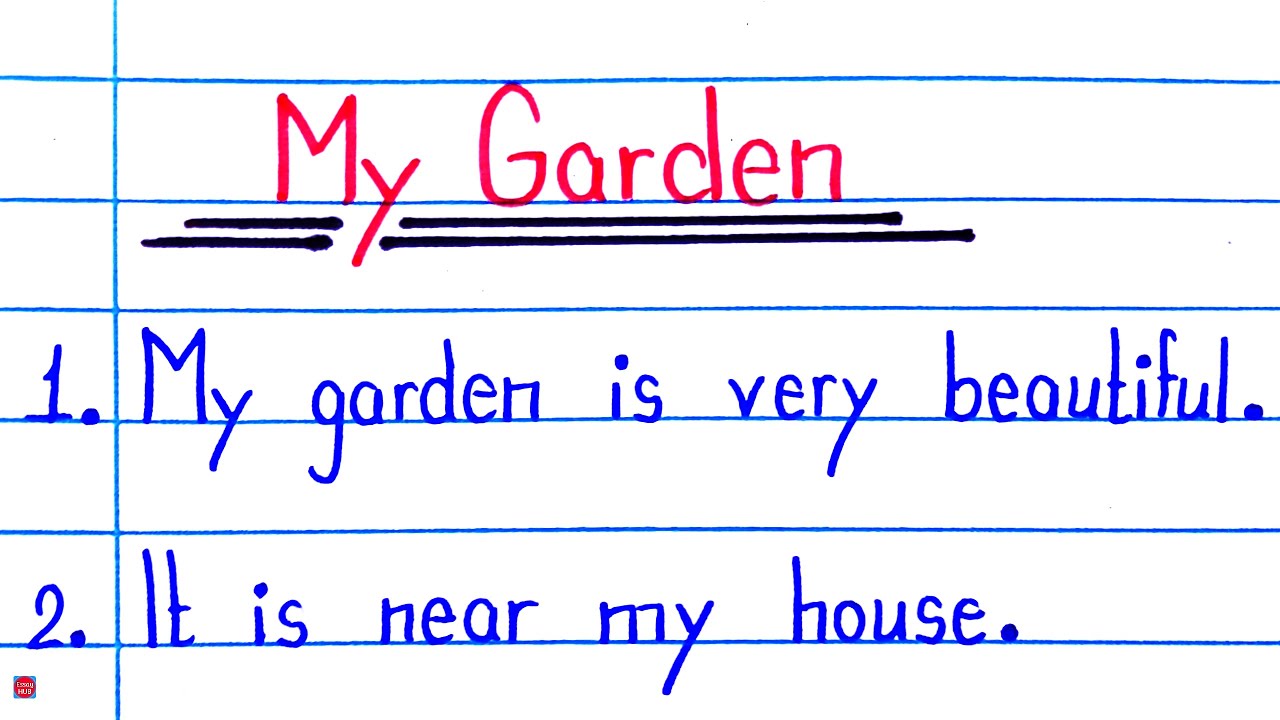 My Garden
1. My garden is very beautiful.
2. It is near my house.
Essay
HUB